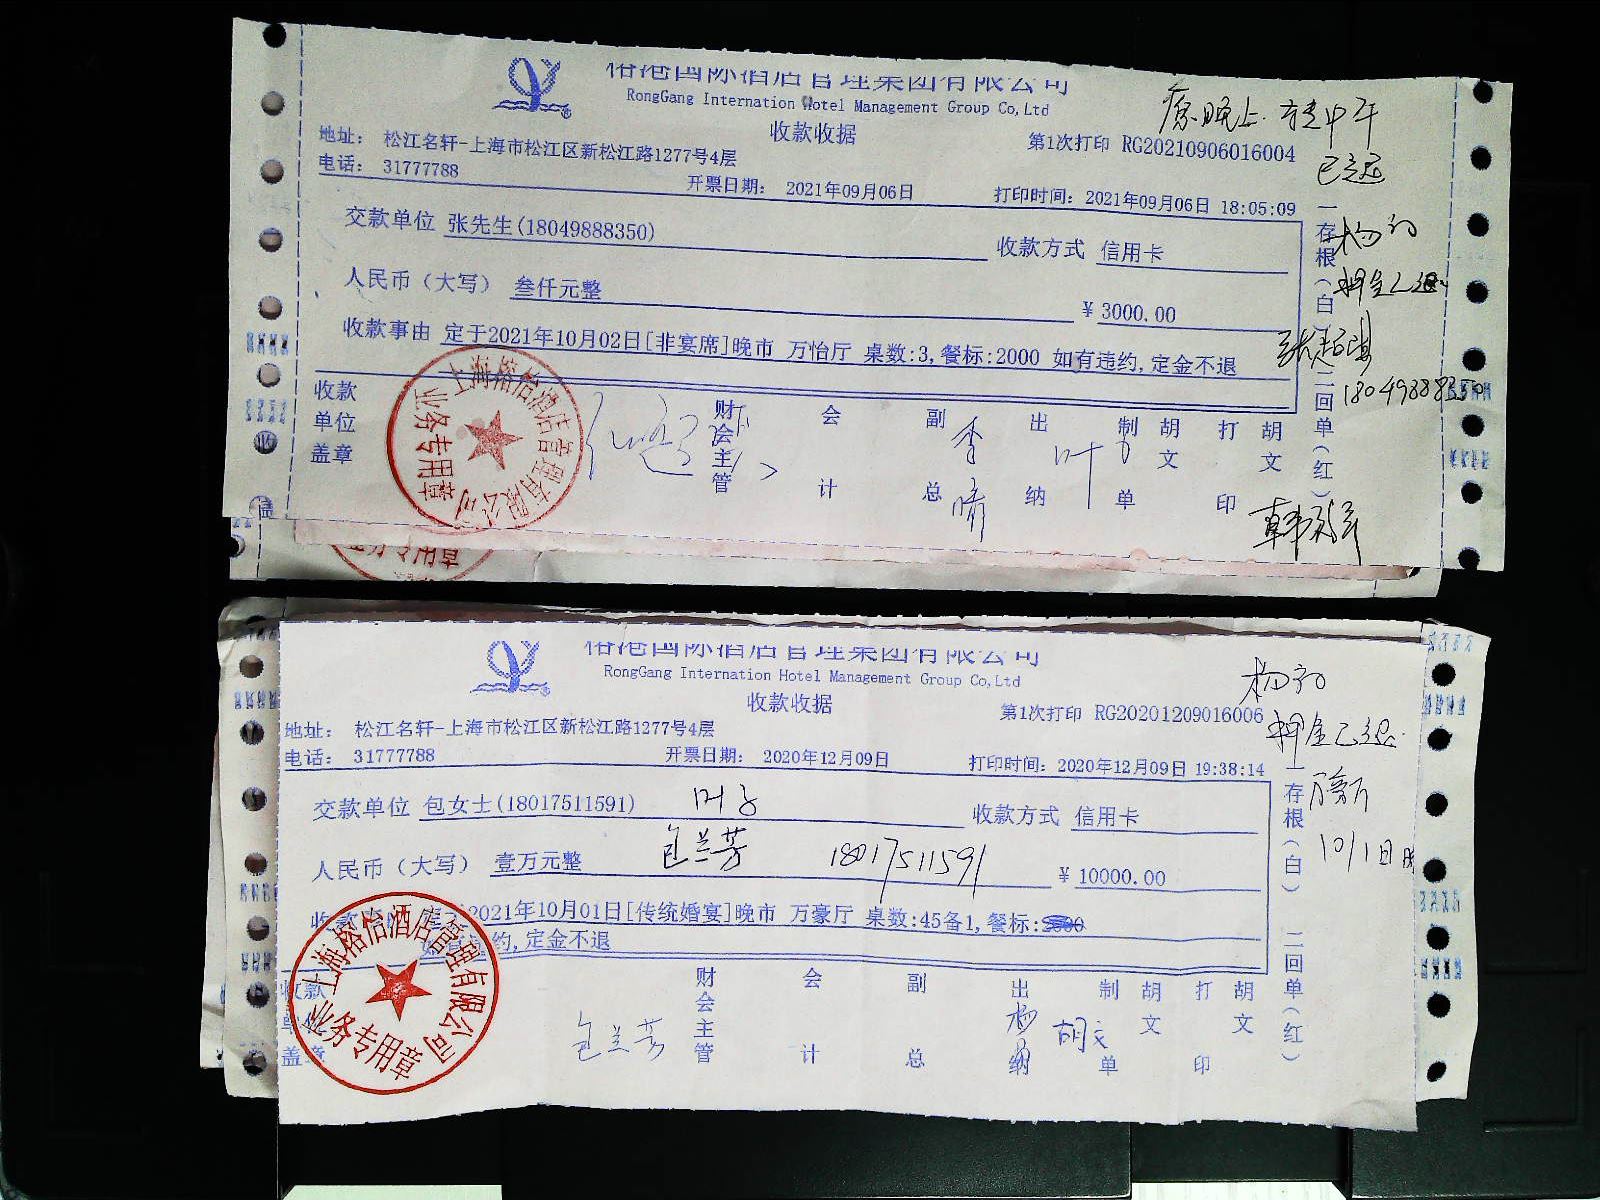 裕港国际酒店管理集团有限公司
RongGang Internation Hotel Management Group Co,Ltd
收款收据
地址: 松江名轩-上海市松江区新松江路1277号4层
第1次打印 RG20210906016004
电话: 31777788
开票日期: 2021年09月06日
打印时间: 2021年09月06日 18:05:09
交款单位 张先生(18049888350)
收款方式 信用卡
人民币（大写） 叁仟元整
¥ 3000.00
收款事由 定于2021年10月02日[非宴席]晚市 万怡厅 桌数:3,餐标:2000 如有违约,定金不退
收款单位盖章
财会主管 会计 副总 出纳 制单 胡文 打印 胡文
一存根（白） 二回单（红）
原晚上
中午
押金已退
18049888350
上海裕怡酒店管理有限公司
业务专用章
裕港国际酒店管理集团有限公司
RongGang Internation Hotel Management Group Co,Ltd
收款收据
地址: 松江名轩-上海市松江区新松江路1277号4层
第1次打印 RG20201209016006
电话: 31777788
开票日期: 2020年12月09日
打印时间: 2020年12月09日 19:38:14
交款单位 包女士(18017511591) 叶子
收款方式 信用卡
包兰芳 18017511591
人民币（大写） 壹万元整
¥ 10000.00
2021年10月01日[传统婚宴]晚市 万豪厅 桌数:45备1,餐标:
约,定金不退
收款单位盖章
财会主管 会计 副总 出纳 制单 胡文 打印 胡文
包兰芳
杨
胡文
一存根（白） 二回单（红）
押金已退
万豪厅
10/1日晚
上海裕怡酒店管理有限公司
业务专用章